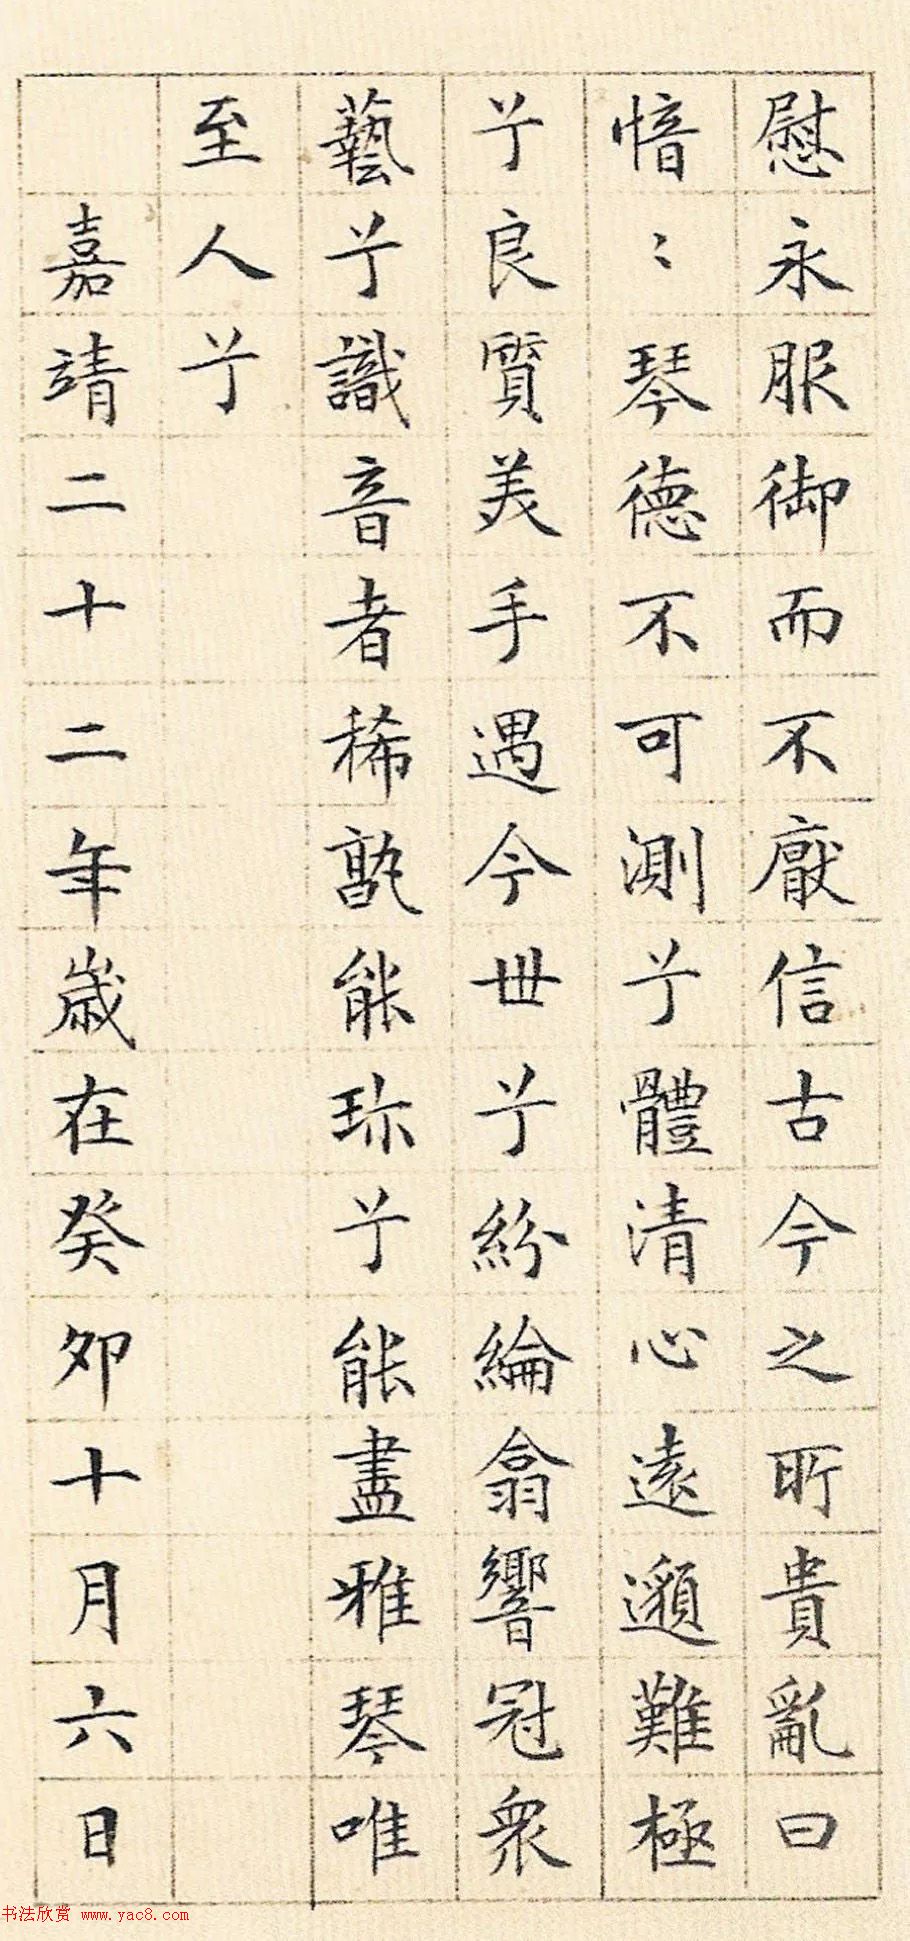 慰永服御而不厭信古今之所貴亂曰
愔〻琴德不可測兮體清心遠邈難極
兮良質美手遇今世兮紛綸翕響冠衆
藝兮識音者稀孰能珎兮能盡雅琴唯
至人兮
嘉靖二十二年歲在癸卯十月六日
书法欣赏 www.yac8.com